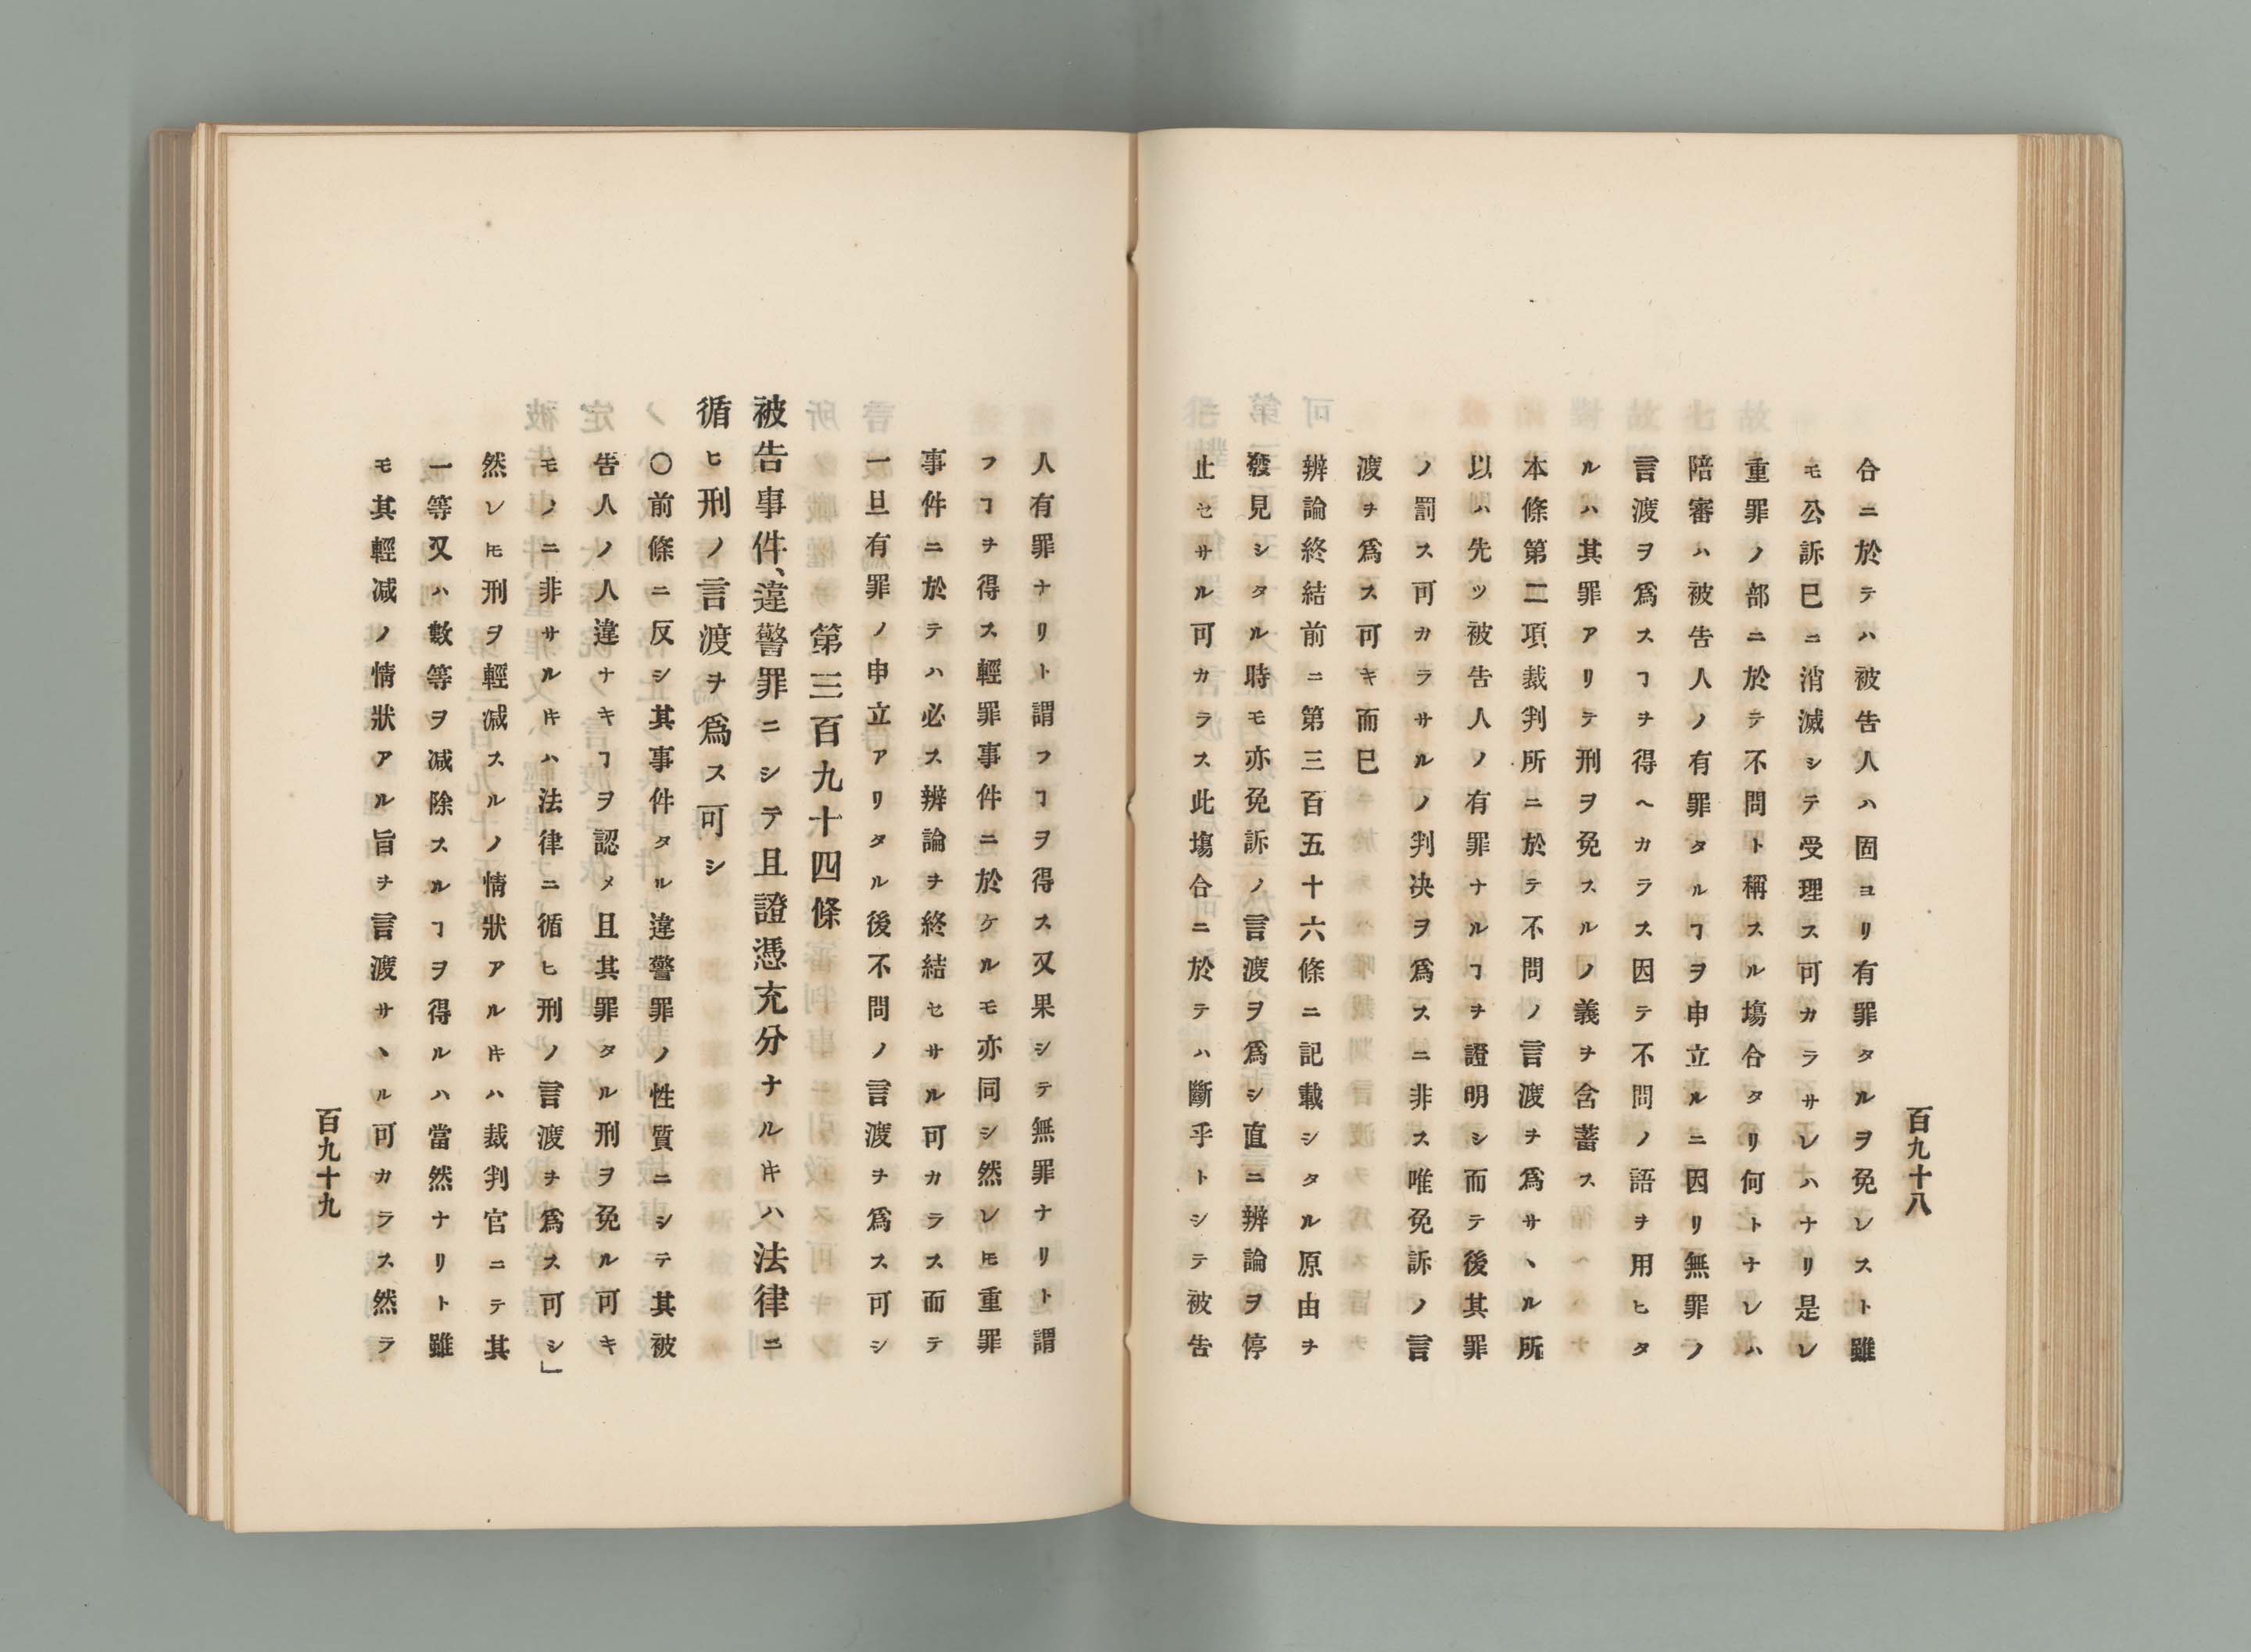 百九十八
合ニ於テハ被告人ハ固ヨリ有罪タルヲ免レスト雖
モ公訴已ニ消滅シテ受理ス可カラサレハナリ是レ
重罪ノ部ニ於テ不問ト稱スル塲合タリ何トナレハ
陪審ハ被告人ノ有罪タルヿヲ申立ルニ因リ無罪ノ
言渡ヲ爲スヿヲ得ヘカラス因テ不問ノ語ヲ用ヒタ
ルハ其罪アリテ刑ヲ免スルノ義ヲ含蓄ス
本條第二項裁判所ニ於テ不問ノ言渡ヲ爲サヽル所
以ハ先ツ被告人ノ有罪ナルヿヲ證明シ而テ後其罪
ノ罰ス可カラサルノ判决ヲ爲スニ非ス唯免訴ノ言
渡ヲ爲ス可キ而已
辨論終結前ニ第三百五十六條ニ記載シタル原由ヲ
發見シタル時モ亦免訴ノ言渡ヲ爲シ直ニ辨論ヲ停
止セサル可カラス此塲合ニ於テハ斷乎トシテ被告
人有罪ナリト謂フヿヲ得ス又果シテ無罪ナリト謂
フヿヲ得ス輕罪事件ニ於ケルモ亦同シ然レ𪜈重罪
事件ニ於テハ必ス辨論ヲ終結セサル可カラス而テ
一旦有罪ノ申立アリタル後不問ノ言渡ヲ爲ス可シ
第三百九十四條
被告事件、違警罪ニシテ且證憑充分ナルキハ法律ニ
循ヒ刑ノ言渡ヲ爲ス可シ
〇前條ニ反シ其事件タル違警罪ノ性質ニシテ其被
告人ノ人違ナキヿヲ認メ且其罪タル刑ヲ免ル可キ
モノニ非サルキハ法律ニ循ヒ刑ノ言渡ヲ爲ス可シ」
然レ𪜈刑ヲ輕减スルノ情狀アルキハ裁判官ニテ其
一等又ハ數等ヲ减除スルヿヲ得ルハ當然ナリト雖
モ其輕减ノ情狀アル旨ヲ言渡サヽル可カラス然ラ
百九十九